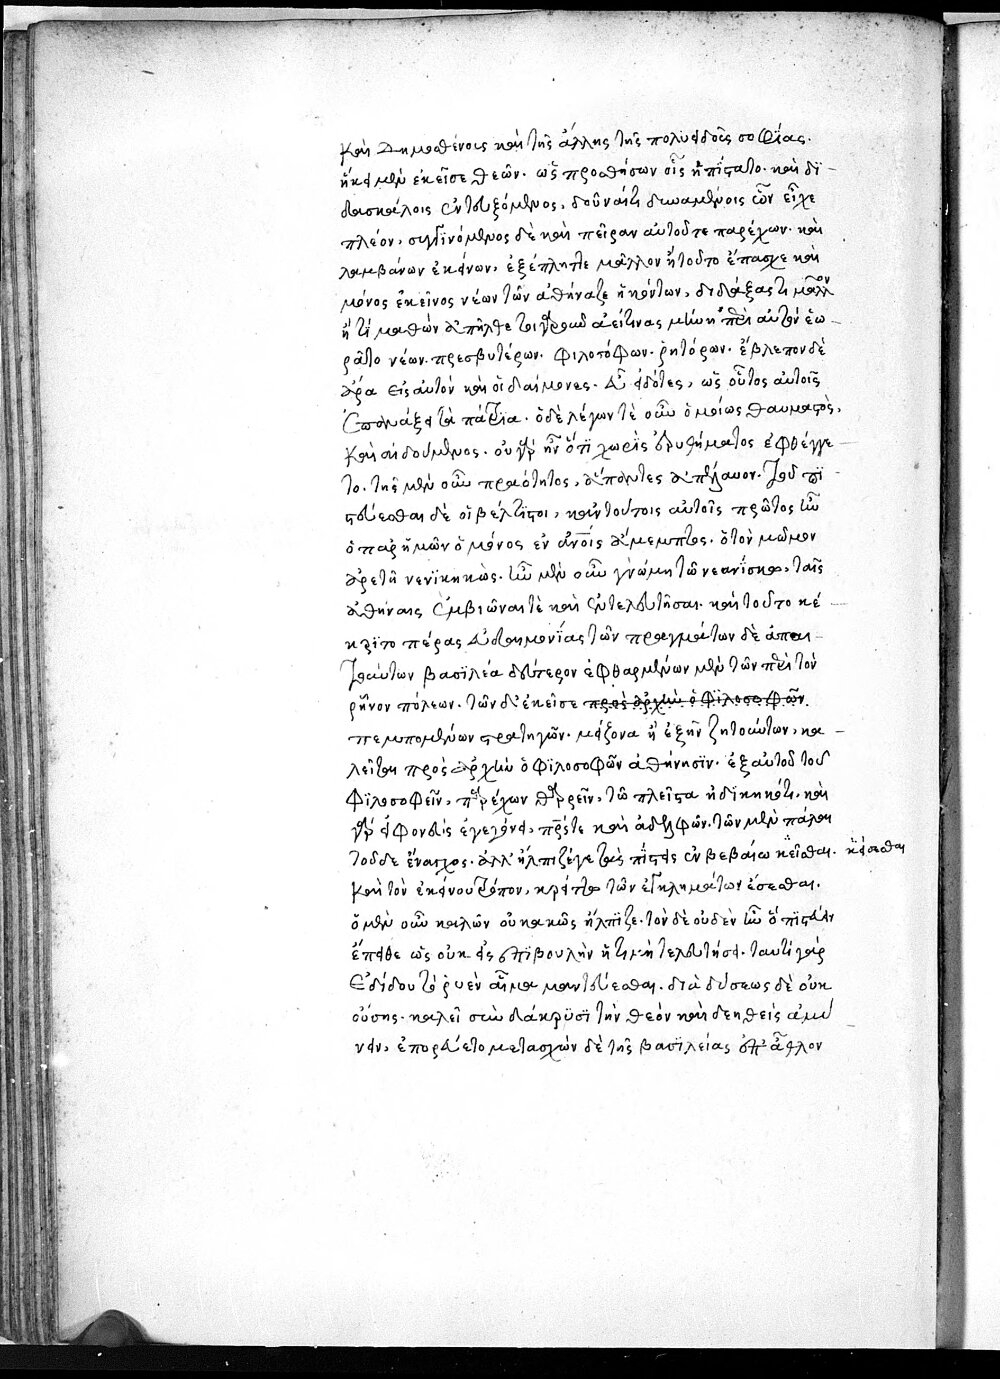 καὶ Δημοσθένους καὶ τῆς ἄλλης τῆς πολυειδοῦς σοφίας.
ἧκε μὲν ἐκεῖσε θεῶν. ὡς προσθήσων οἷς ἠπίστατο. καὶ δι-
δασκάλοις ἐντευξόμενος, δοῦναί τι δυναμένοις ὧν εἶχε
πλέον, συγγινόμενος δὲ καὶ πεῖραν αὑτοῦ τε παρέχων. καὶ
λαμβάνων ἐκείνων, ἐξέπληττε μᾶλλον ἢ τοῦτο ἔπασχε καὶ
μόνος ἐκεῖνος νέων τῶν Ἀθήναζε ἡκόντων, διδάξας τι μᾶλλον
ἢ τι μαθὼν ἀπῆλθε τοιγαροῦν ἀεί τινας περὶ αὐτὸν ἑω-
ρᾶτο νέων. πρεσβυτέρων. φιλοσόφων. ῥητόρων. ἔβλεπον δὲ
ἄρα εἰς αὐτὸν καὶ οἱ δαίμονες. εὖ εἰδότες, ὡς οὗτος αὐτοῖς
ἀποκατάξει τὰ πάτρια. ὁ δὲ λέγων τὲ οὖν ὁμοίως θαυμαστὸς,
καὶ αἰδούμενος. οὐ γὰρ ἦν ὅ,τι χωρὶς ἐρυθήματος ἐφθέγγε-
το. τῆς μὲν οὖν πραότητος, ἅπαντες ἀπέλαυον. τοῦ πι-
στεύεσθαι δὲ οἱ βέλτιστοι, κἀν τούτοις αὐτοῖς πρῶτος ἦν
ὁ παρ' ἡμῶν ὁ μόνος ἐν ἀνοις ἄμεμπτος. ὁ τὸν μῶμον
ἀρετῇ νενικηκώς. ἦν μὲν οὖν γνώμη τῷ νεανίσκῳ, ταῖς
Ἀθήναις ἐμβιῶναι τὲ καὶ ἐντελευτῆσαι. καὶ τοῦτο κέ-
κριτο πέρας εὐδαιμονίας τῶν πραγμάτων δὲ ἀπαι-
τούντων βασιλέα δεύτερον ἐφθαρμένων μὲν τῶν περὶ τὸν
ῥῆνον πόλεων. τῶν δ' ἐκεῖσε προς αρχην ο φιλοσοφων
πεμπομένων στρατηγῶν. μείζονα ἢ ἐξῆν ζητούντων, κα-
λεῖται πρὸς ἀρχὴν ὁ φιλοσοφῶν Ἀθήνησιν. ἐξ αὐτοῦ τοῦ
φιλοσοφεῖν, παρέχων θαρρεῖν, τῷ πλεῖστα ἠδικηκότι, καὶ
γὰρ εἰ φονεὺς ἐγεγόνει, πρς τε καὶ ἀδελφῶν. τῶν μὲν πάλαι
τοῦ δε ἔναγχος. ἀλλ' ἤλπιζέ γε τὰς πίστεις ἐν βεβαίῳ κεῖσθαι. κείσεσθαι
καὶ τὸν ἐκείνου τρόπον, κρείττω τῶν ἐγκλημάτων ἔσεσθαι.
ὁ μὲν οὖν καλῶν οὐ κακῶς ἤλπιζε. τὸν δὲ οὐδὲν ἦν ὃ πιστεύειν
ἔπειθε ὡς οὐκ εἰς ἐπιβουλὴν ἡ τιμὴ τελευτήσει. ταυτὶ γὰρ
ἐδίδου τὸ ῥυὲν αἷμα μαντεύεσθαι. διαδύσεως δὲ οὐκ
οὔσης. καλεῖ σὺν δάκρυσι τὴν θεὸν καὶ δεηθεὶς ἀμύ
νειν, ἐπορεύετο μετασχὼν δὲ τῆς βασιλείας ἐπ' ἆθλον